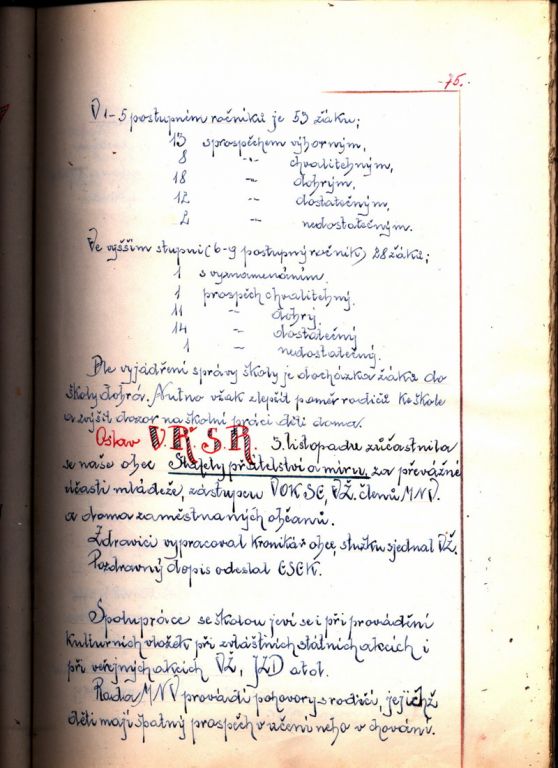 -75.
V 1-5 postupném ročníku je 53 žáků;
13 s prospěchem výborným,
8 -"- chvalitebným,
18 -"- dobrým,
12 -"- dostatečným,
2 -"- nedostatečným.
Ve vyšším stupni (6-9 postupný ročník) 28 žáků;
1 s vyznamenáním
1 prospěch chvalitebný.
11 -"- dobrý
14 -"- dostatečný
1 -"- nedostatečný.
Dle vyjádření správy školy je docházka žáků do
školy dobrá. Nutno však zlepšit poměr rodičů ke škole
a zvýšit dozor na školní práci dětí doma.
Oslav V.Ř.S.R. 5. listopadu zúčastnila
se naše obec Štafety přátelství a míru, za převážné
účasti mládeže, zástupců VOKSČ, VŽ. členů MNV.
a doma zaměstnaných občanů.
Zdravici vypracoval kronikář obce, stužku sjednal VŽ.
Pozdravný dopis odeslal ČSČK.
Spolupráce se školou jeví se i při provádění
kulturních vložek při zvláštních státních akcích i
při veřejných akcích VŽ, JZD atd.
Rada MNV provádí pohovory s rodiči, jejichž
děti mají špatný prospěch v učení nebo v chování.